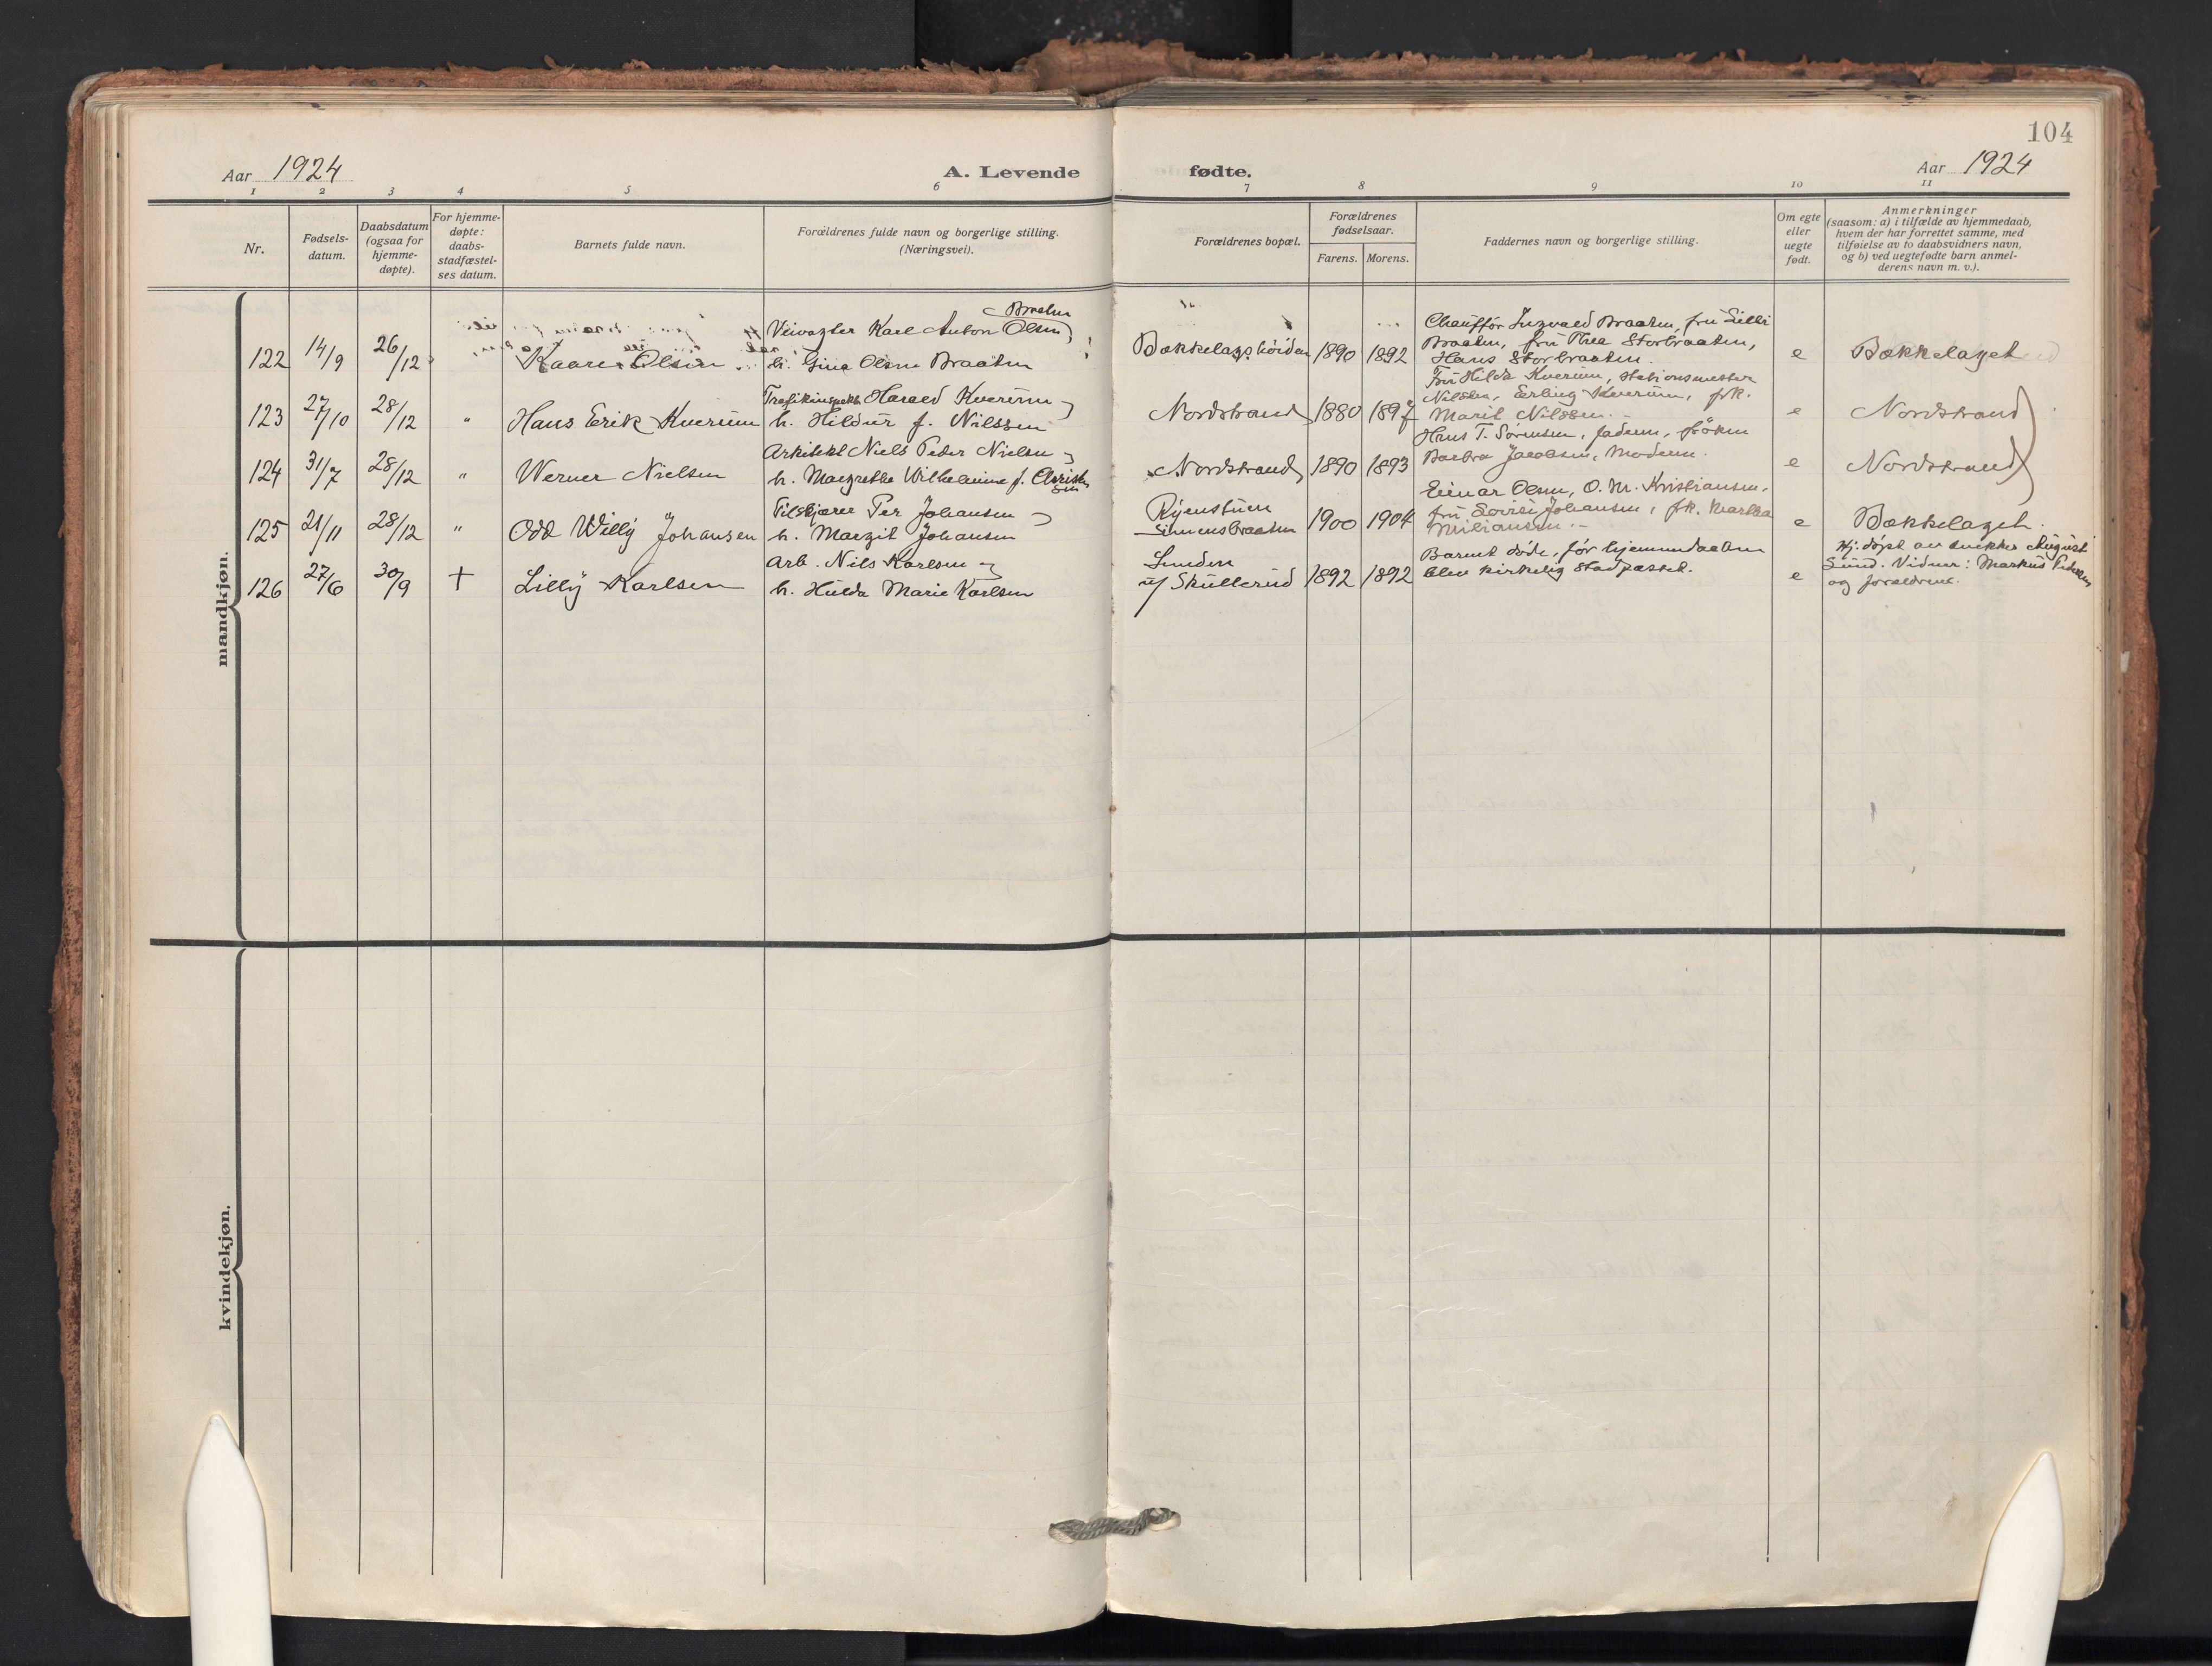 104
Aar 1924
A. Levende
fødte.
Aar 1924
1 2 3 4 5 6 7 8 9 10 11
Nr.
Fødsels-
datum.
Daabsdatum
(ogsaa for
hjemme-
døpte).
For hjemme-
døpte:
daabs-
stadfæstel-
ses datum.
Barnets fulde navn.
Forældrenes fulde navn og borgerlige stilling.
(Næringsvei).
Forældrenes bopæl.
Forældrenes
fødselsaar.
Farens. Morens.
Faddernes navn og borgerlige stilling.
Om egte
eller
uegte
født.
Anmerkninger
(saasom: a) i tilfælde av hjemmedaab,
hvem der har forrettet samme, med
tilføielse av to daabsvidners navn,
og b) ved uegtefødte barn anmel-
derens navn m. v.).
mandkjøn.
Braaten
Veivogter Karl Anton Olsen
122 14/9 26/12 Kaare Olsen h. Gina Olsen Braaten
Bækkelagshøiden 1890 1892
Chauffør Ingvald Braaten, fru Lilli
Braaten, fru Thea Storbraaten,
Hans Storbraaten.
e Bækkelaget
Trafikinspekt. Harald Kverum
123 27/10 28/12 " Hans Erik Kverum h. Hildur f. Nilssen
Nordstrand 1880 1897
Fru Hilda Kverum, stationsmester
Nilssen, Erling Kverum, frk.
Marit Nilssen.
e Nordstrand
Arkitekt Niels Peder Nielsen
124 31/7 28/12 " Werner Nielsen h. Margrethe Wilhelmine f. Christen
sen
Nordstrand 1890 1893
Hans T. Sørensen, faderen, frøken
Barbra Jacobsen, Moderen.
e Nordstrand
Per Johansen
125 21/11 28/12 " Odd Willy Johansen h. Margit Johansen
Ryenstuen
Simensbraaten 1900 1904
Einar Olsen, O. M. Kristiansen,
fru Lovise Johansen, frk. Martha
e Bækkelaget.
Arb. Nils Karlsen
126 27/6 30/9 + Lilly Karlsen h. Hulda Marie Karlsen
Lunden
u/ Skullerud 1892 1892
Barnet døde, før hjemmedaaben
blev kirkelig stadfæstet.
e
Hj. døpt av snekker August
Sund. Vidner: Markus Pedersen
og forældrene.
kvindekjøn.